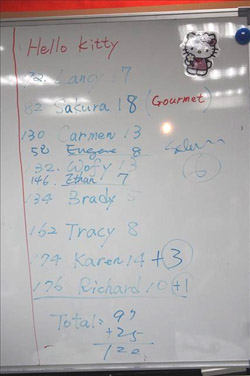 Hello Kitty
Lancy 17
Sakura 18 (Gourmet)
130 Carmen 13
52 Eugene 8
32. Wofy 13
146. Ethan 7
134 Brady
162 Tracy 8
174 Karen 14 +3
176 Richard 10 +1
Total: 97
+25
6